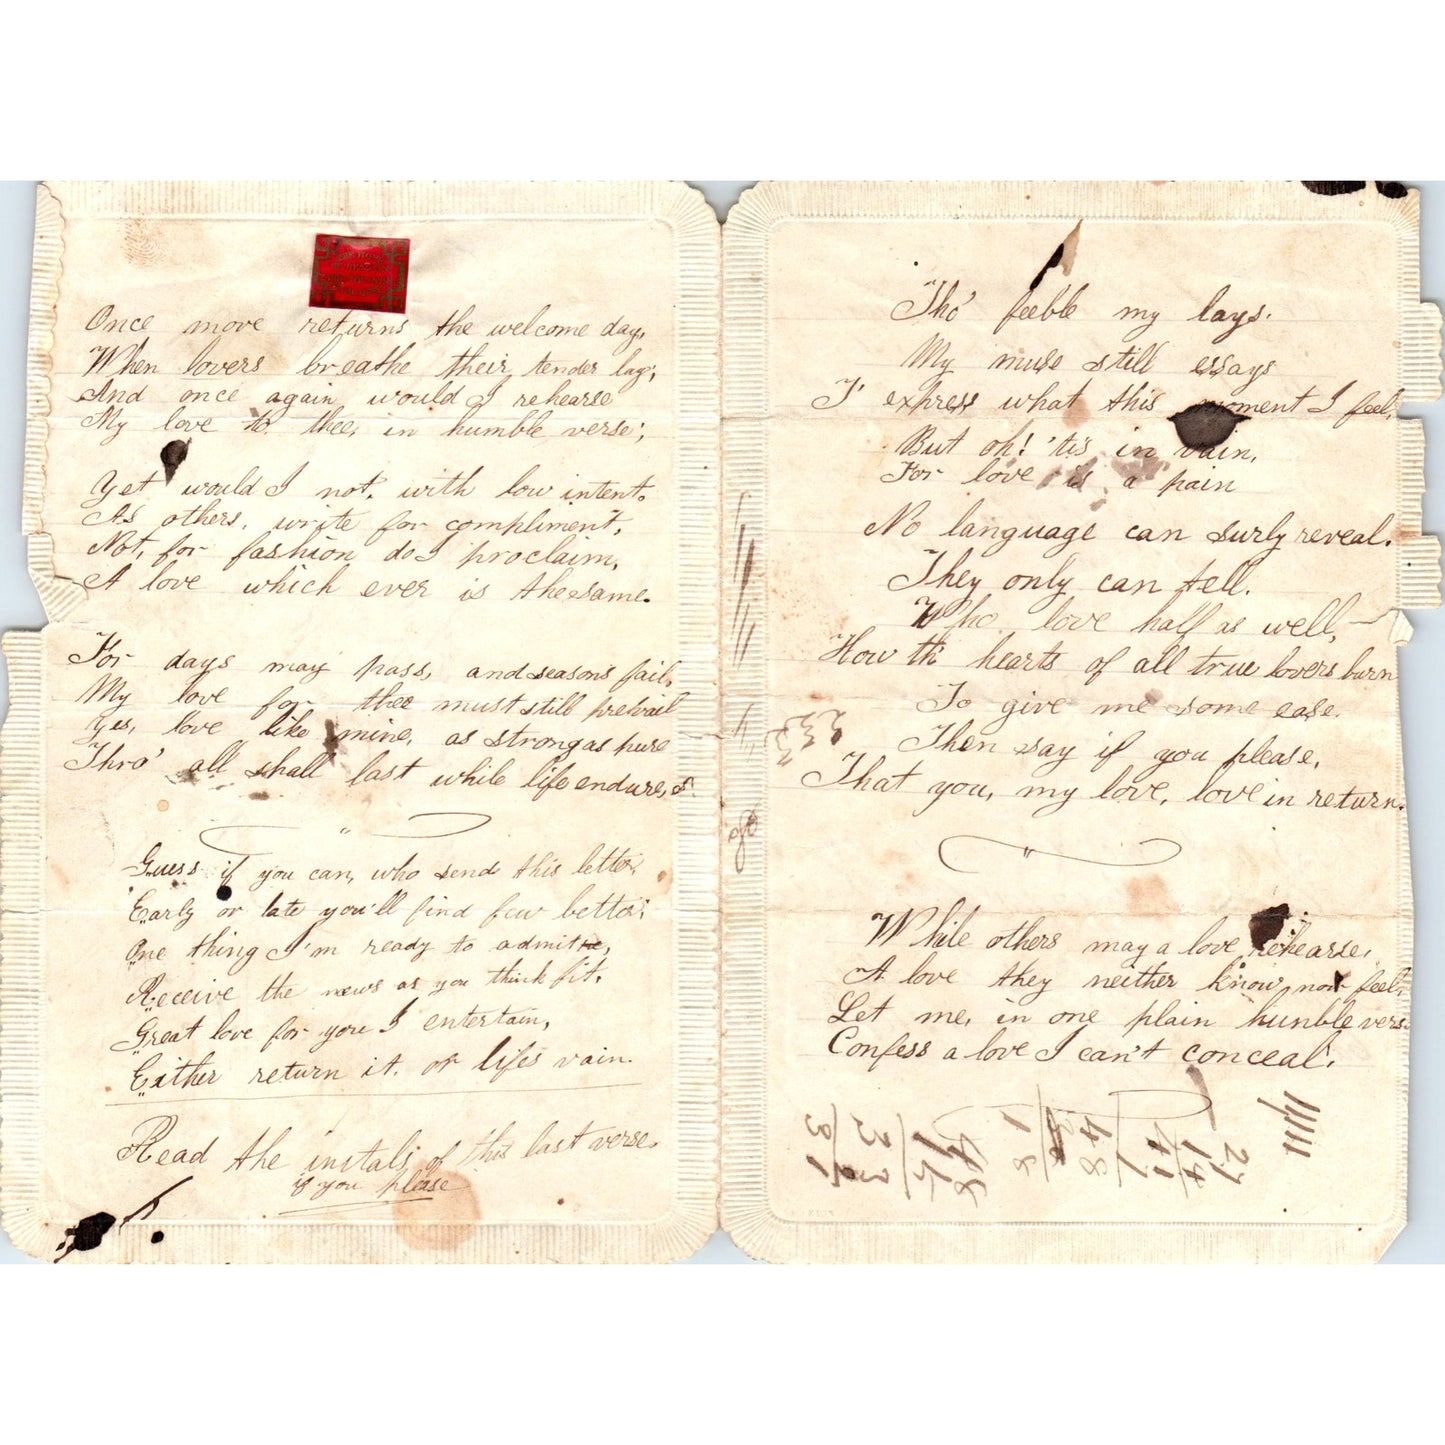 Once more returns the welcome day,
When lovers breathe their tender lay;
And once again would I rehearse
My love to thee, in humble verse;
Yet would I not, with low intent.
As others, write for compliment,
Not, for fashion do I proclaim,
A love which ever is the same.
For days may pass, and seasons fail,
My love for thee must still prevail
Yes, love like mine, as strong as pure
Thro' all shall last while life endures,
Guess if you can, who send this letter,
Early or late you'll find few better;
One thing I'm ready to admit,
Receive the news as you think fit,
Great love for you I entertain,
Either return it, or lifes vain.
Read the instals of this last verse
if you please
Tho' feeble my lays.
My muse still essays
T' express what this moment I feel,
But oh! 'tis in vain,
For love is a pain
No language can surly reveal.
They only can tell.
Who love half as well,
How th' hearts of all true lovers burn
To give me some ease.
Then say if you please,
That you, my love, love in return.
While others may a love rehearse,
A love they neither know nor feel,
Let me, in one plain humble vers
Confess a love I can't conceal.